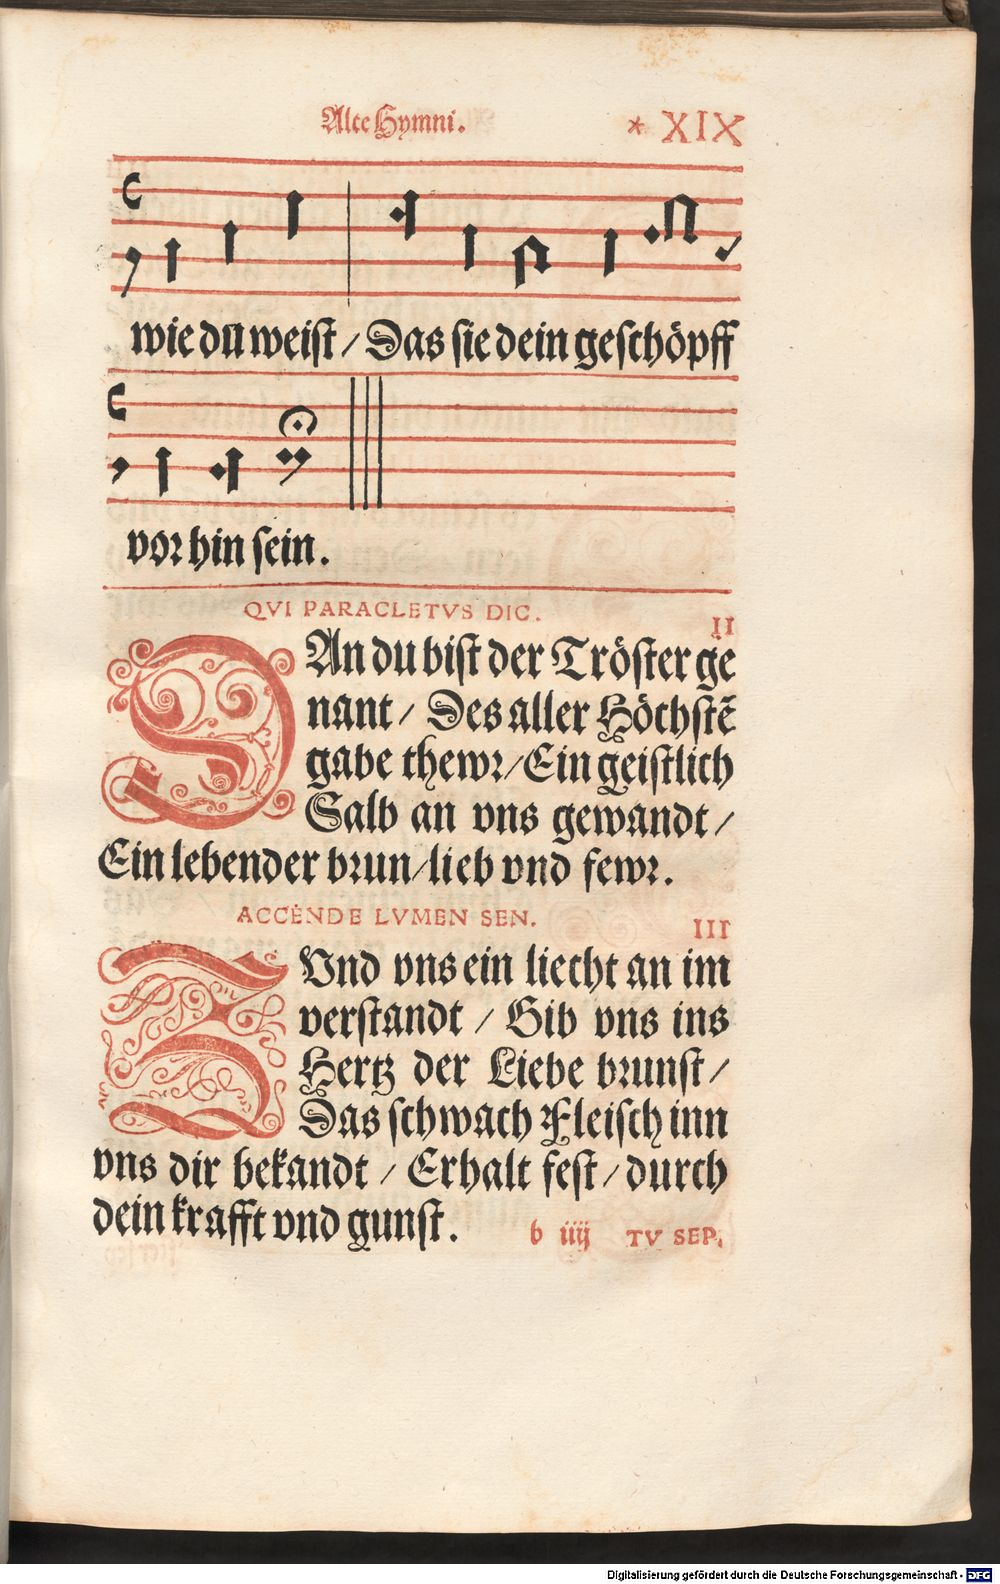 Alte Hymni. * XIX
wie du weist / Das sie dein geschöpff
vor hin sein.
QVI PARACLETVS DIC. II
DAn du bist der Tröster ge
nant / Des aller Höchstẽ
gabe thewr / Ein geistlich
Salb an vns gewandt /
Ein lebender brun / lieb vnd fewr.
ACCENDE LVMEN SEN. III
ZVnd vns ein liecht an im
verstandt / Gib vns ins
Hertz der Liebe brunst /
Das schwach Fleisch inn
vns dir bekandt / Erhalt fest / durch
dein krafft vnd gunst.
b iiij TV SEP.
Digitalisierung gefördert durch die Deutsche Forschungsgemeinschaft - DFG